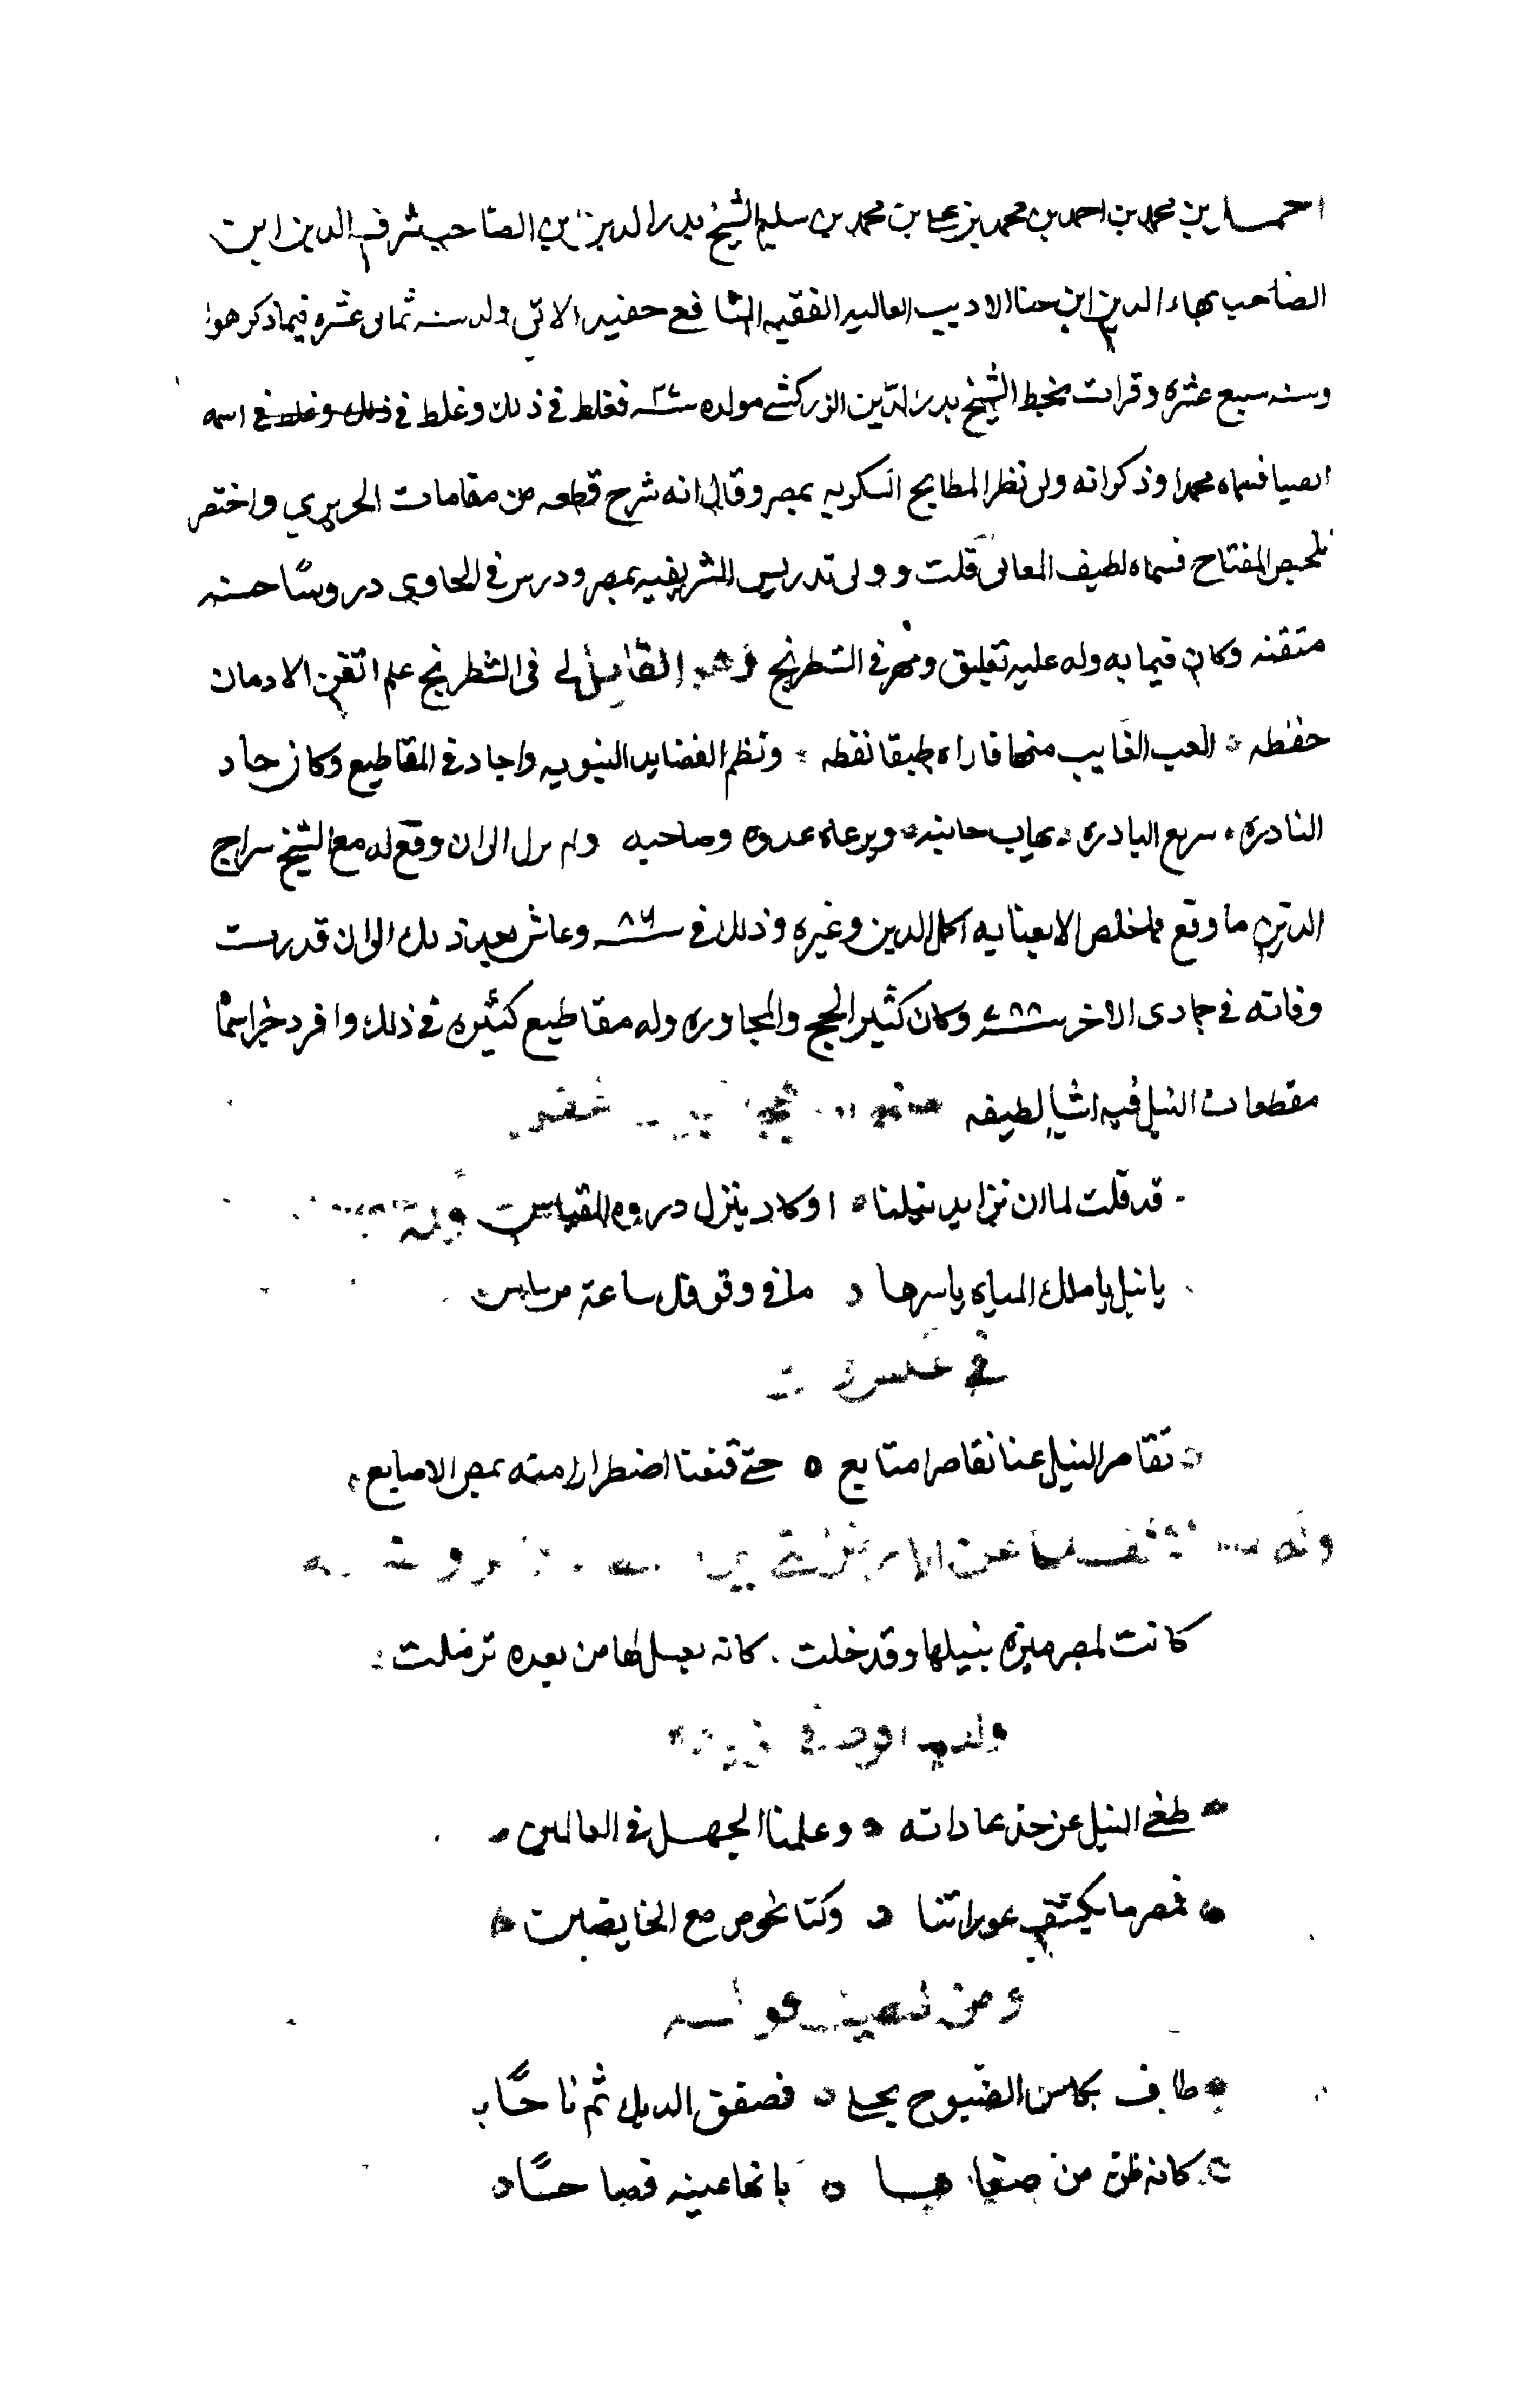 احمد بن محمد بن احمد بن محمد بن علي بن محمد بن سليم الشيخ بدر الدين بن الصاحب شرف الدين ابن
الصاحب بهاء الدين ابن حنا الاديب العالم الفقيه الشافعي حفيد الاتي ولد سنه ثمان عشره فيما ذكر هو او
سنه سبع عشره وقرات بخط الشيخ بدر الدين الزركشي مولده سنة فغلط في ذلك وغلط في ذلك وغلط في اسمه
ايضا فسماه محمدا وذكر انه ولي نظر المطابخ السكريه بمصر وقال انه شرح قطعه من مقامات الحريري واختصر
تلخيص المفتاح فسماه لطيف المعاني قلت وولي تدريس الشريفيه بمصر ودرس في الحاوي دروسا حسنه
متقنه وكان قيما به وله عليه تعليق ومهر في الشطرنج القايل لي في الشطرنج علم اتقن الادمان
حفظه العب الغايب منها فاراه طبقا نقطه ونظم القصايد النبويه واجاد في المقاطيع وكان حاد
النادره سريع البادره يهاب جانبه ويرعاه عدوه وصاحبه ولم يزل الى ان وقع له مع الشيخ سراج
الدين ما وقع فما خلص الا بعنايه اكمل الدين وغيره وذلك في سنة ٨٦ وعاش بعد ذلك الى ان قدرت
وفاته في جمادى الاخر سنة ٧٨٨ وكان كثير الحج والمجاوره وله مقاطيع كثيره في ذلك وافرد جزا سماه
مقطعات النيل فيه اشيا لطيفه
قد قلت لما ان تزايد نيلنا او كاد ينزل دروه المقياس
يا نيل يا ملك المياه باسرها ما في وقوفك ساعة من باس
في عكس
تقاصر النيل عنا تقاصرا متتابع حتى قنعنا اضطرارا منه بمص الاصابع
كانت لمصر ميزه بنيلها وقد خلت كانه بعسل لها من بعده ترملت
طغى النيل عن حد عاداته وعلمنا الجهل في العالمين
فصرما يكشف عوراتنا وكنا نخوض مع الخايضين
ومن
طاف بكاس الصبوح يحيى فصفق الديك ثم ناحا
كانه ظن من صفاها بانها عينه فصاحا